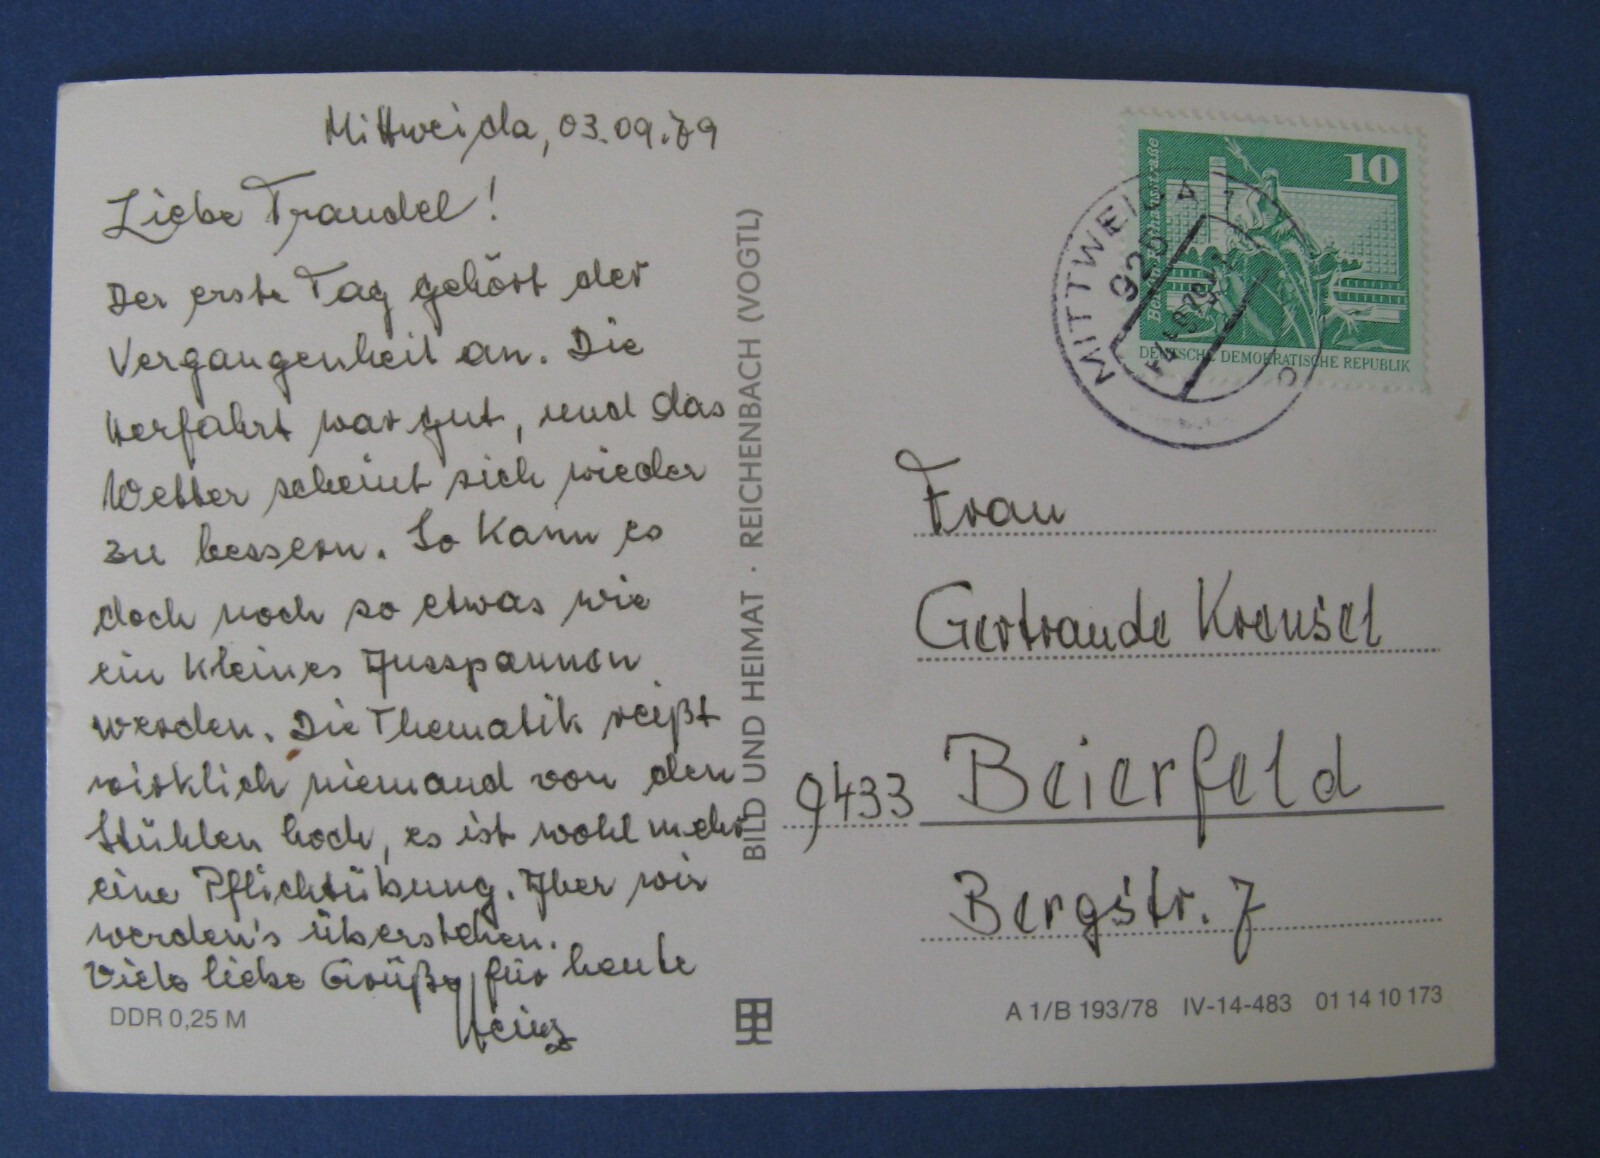 Mittweida, 03.09.79
Liebe Traudel!
Der erste Tag gehört der
Vergangenheit an. Die
Herfahrt war gut, und das
Wetter scheint sich wieder
zu bessern. So kann es
doch noch so etwas wie
ein kleines Ausspannen
werden. Die Thematik reißt
wirklich niemand von den
Stühlen hoch, es ist wohl mehr
eine Pflichtübung. Aber wir
werden's überstehen.
Viele liebe Grüße für heute
Heinz
DDR 0,25 M
BILD UND HEIMAT · REICHENBACH (VOGTL)
10
DEUTSCHE DEMOKRATISCHE REPUBLIK
MITTWEIDA 1
925
Frau
Gertraude Kreusel
9433 Beierfeld
Bergstr. 7
A 1/B 193/78 IV-14-483 01 14 10 173